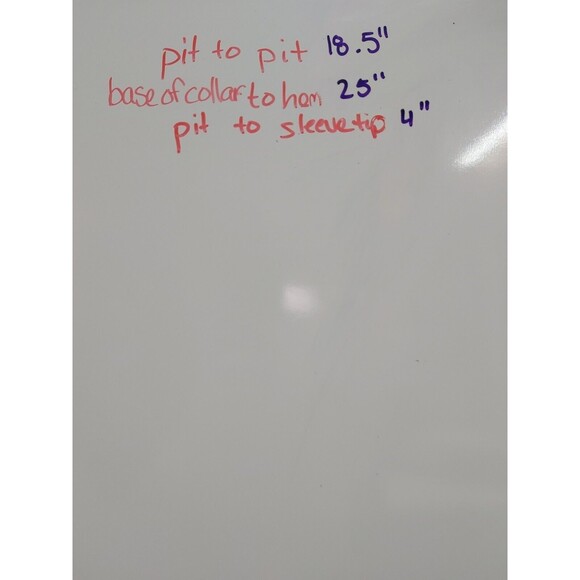 pit to pit 18.5"
base of collar to hem 25"
pit to sleeve tip 4"